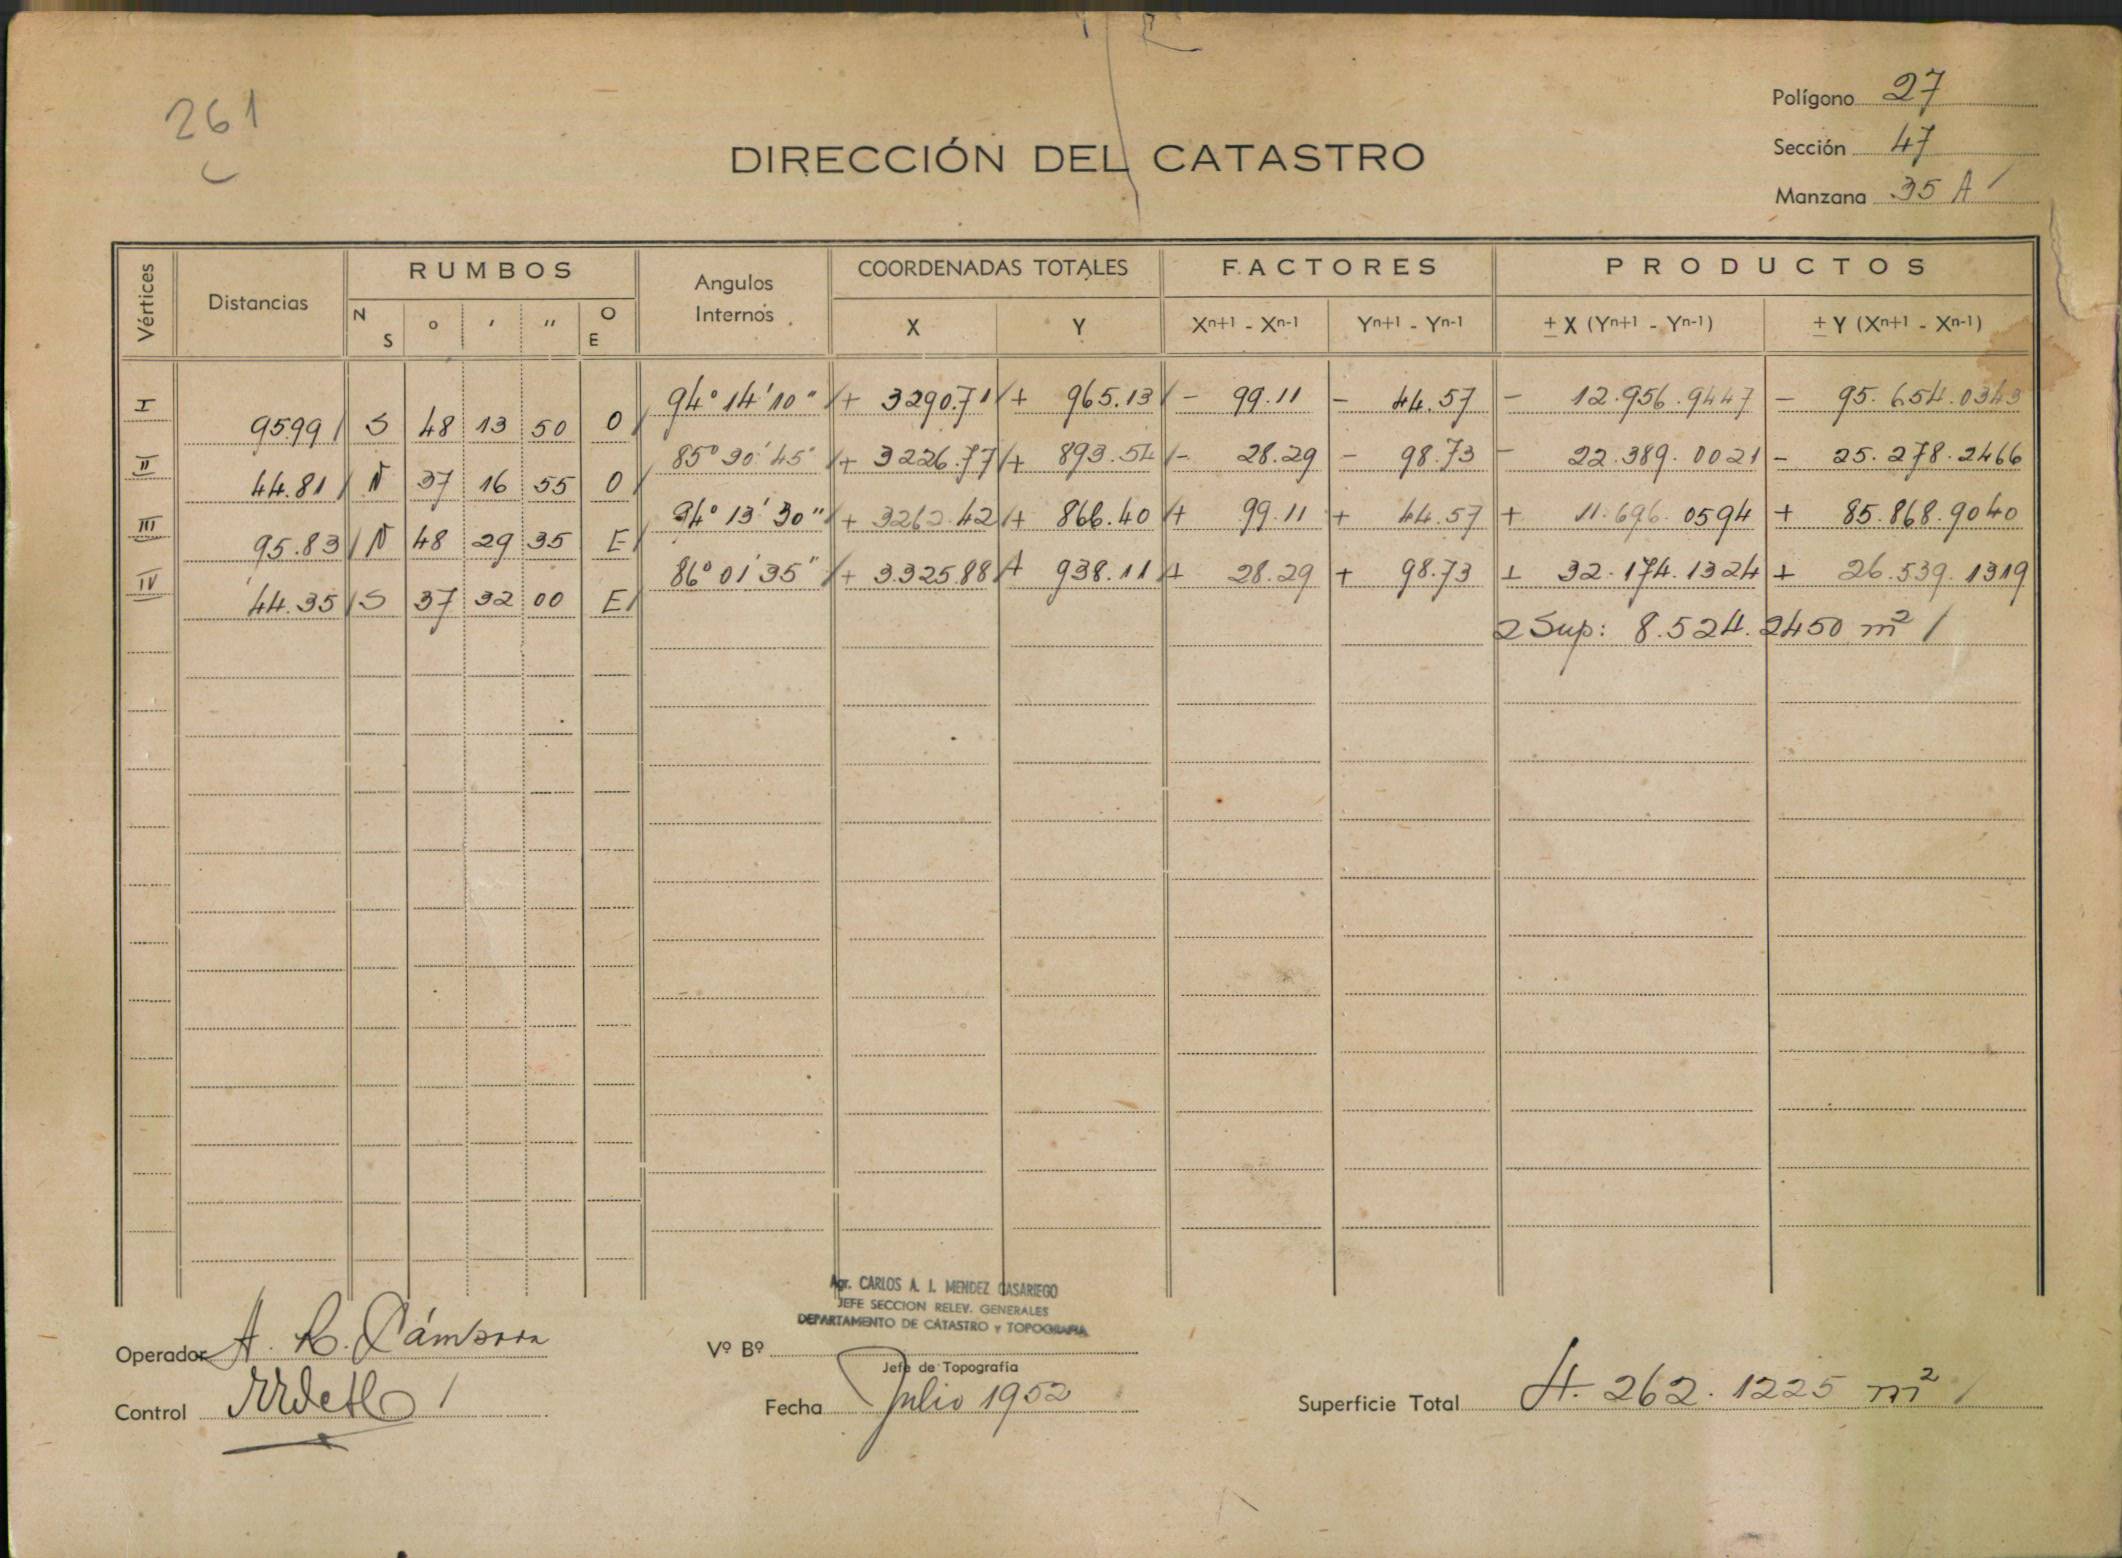 261
Polígono 27
Sección 47
DIRECCIÓN DEL CATASTRO
Manzana 35 A /
Vértices Distancias RUMBOS Angulos Internos COORDENADAS TOTALES FACTORES PRODUCTOS
N S ° ' " O E X Y Xn+1 - Xn-1 Yn+1 - Yn-1 ± X (Yn+1 - Yn-1) ± Y (Xn+1 - Xn-1)
I 94° 14' 10" / + 3290.71 / + 965.13 / - 99.11 - 44.57 - 12.956.9447 - 95.654.0343
95.99 / S 48 13 50 O /
II 85° 30' 45" / + 3226.77 / + 893.54 / - 28.29 - 98.73 - 22.389.0021 - 25.278.2466
44.81 / N 37 16 55 O /
III 94° 13' 30" / + 3262.42 / + 866.40 / + 99.11 + 44.57 + 11.696.0594 + 85.868.9040
95.83 / N 48 29 35 E /
IV 86° 01' 35" / + 3325.88 / + 938.11 / + 28.29 + 98.73 + 32.174.1324 + 26.539.1319
44.35 / S 37 32 00 E /
2 Sup: 8.524.2450 m² /
Agr. CARLOS A. I. MENDEZ CASARIEGO
JEFE SECCION RELEV. GENERALES
DEPARTAMENTO DE CATASTRO y TOPOGRAFIA
Operador A. R. Cámpora
Vº Bº
Jefe de Topografía
Control
Fecha Julio 1952
Superficie Total 4.262.1225 m² /